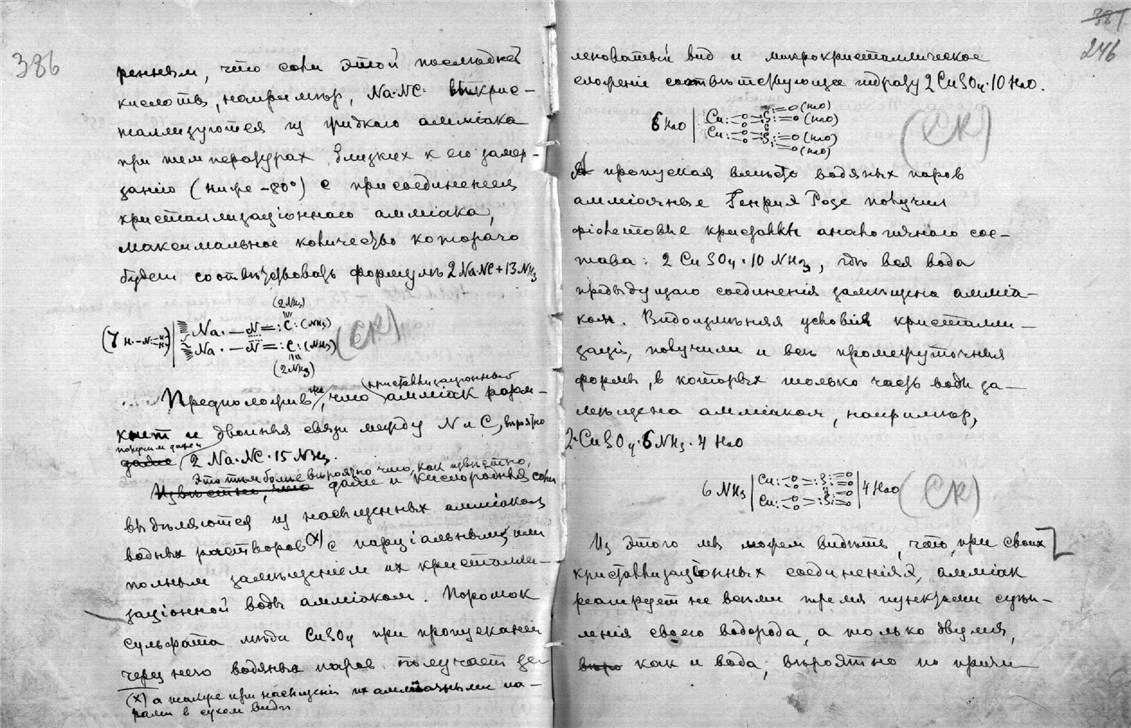 386
ренным, что соли этой последней
кислоты, например, Na·NC· выкрис-
таллизуются из жидкого амміака
при температурах близких к его замер-
занію (ниже -80°) с присоединением
кристаллизаціоннаго амміака,
максимальное количество котораго
будет соответствовать формуле 2 Na·NC + 13 NH₃
(2NH₃)
Na· — N =: C: (NH₃)
Na· — N =: C: (NH₃)
(2NH₃)
(CR)
Предположив же, что кристаллизаціонный амміак разом-
кнет и двойныя связи между N и C, вероятно
получим даже 2 Na·NC·15 NH₃.
Это тем более вероятно что, как известно,
Известно, что даже и кислородныя соли
выделяются из насыщенных амміаком
водных растворов (x) с парціальным или
полным замещением их кристалли-
заціонной воды амміаком. Порошок
сульфата меди CuSO₄ при пропусканіи
через него водяных паров получает
(x) а также при насыщеніи их амміачными па-
рами в сухом виде
387
246
леноватый вид и микрокристаллическое
сложеніе соответствующее гидрату 2 CuSO₄·10 H₂O.
6 H₂O | Cu
(H₂O)
(H₂O)
(H₂O)
(H₂O)
(CR)
А пропуская вместо водяных паров
амміачные Генрих Розе получил
фіолетовые кристаллы аналогичнаго сос-
тава: 2 CuSO₄·10 NH₃, где вся вода
предыдущаго соединенія замещена амміа-
ком. Видоизменяя условія кристалли-
заціи, получили и все промежуточныя
формы, в которых только часть воды за-
мещена амміаком, например,
2·CuSO₄·6 NH₃·4 H₂O
6 NH₃ | Cu | 4 H₂O
(CR)
Из этого мы можем видеть, что, при своих
кристаллизаціонных соединеніях, амміак
реагирует не всеми тремя пунктами сцеп-
ленія своего водорода, а только двумя,
как и вода; вероятно по причи-